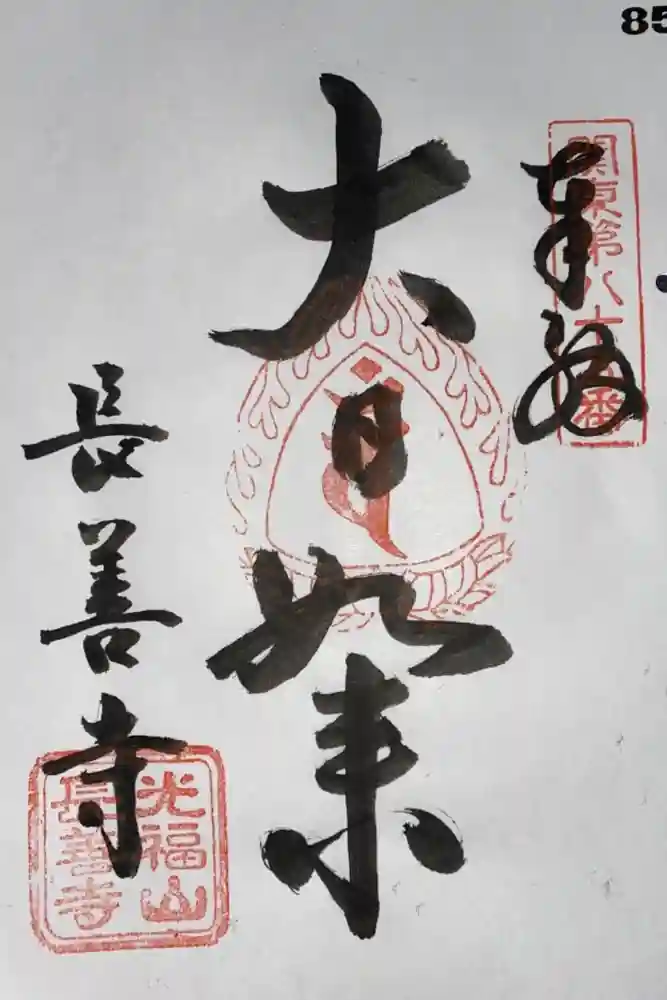 85
関東第八十五番
奉拝
大日如来
長善寺
光福山
長善寺